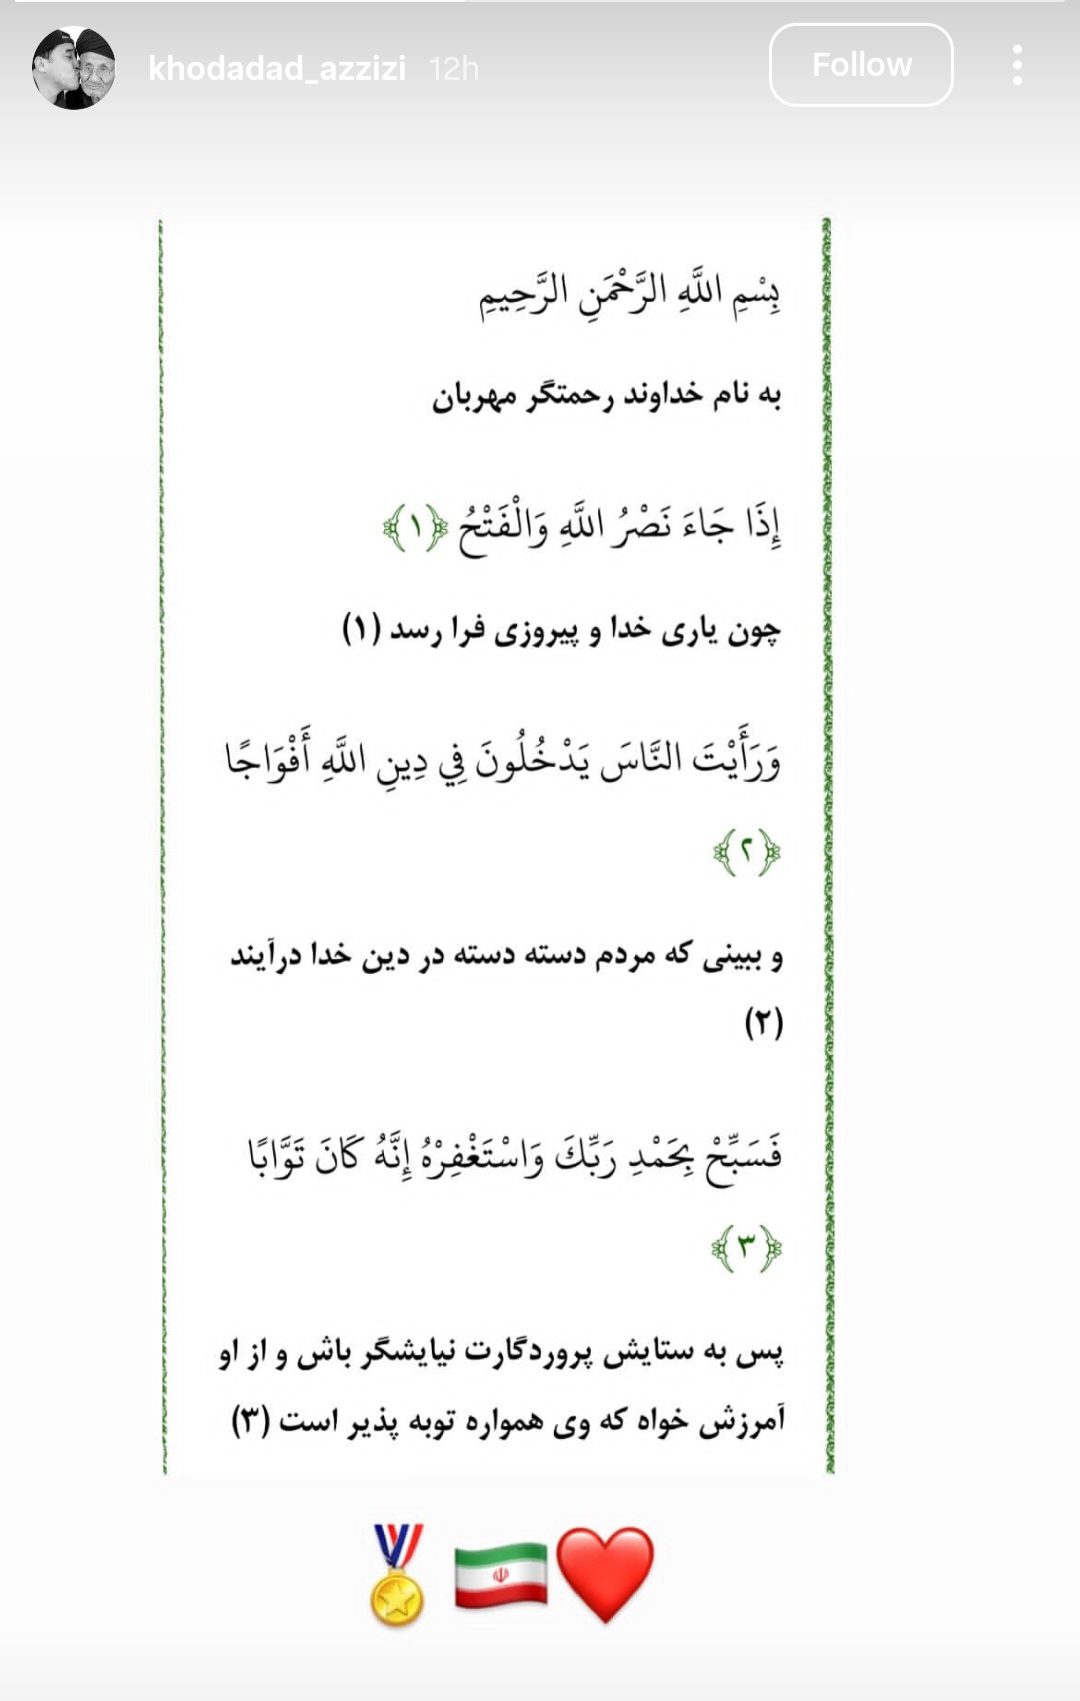 khodadad_azzizi 12h
Follow
بِسْمِ اللَّهِ الرَّحْمَنِ الرَّحِيمِ
به نام خداوند رحمتگر مهربان
إِذَا جَاءَ نَصْرُ اللَّهِ وَالْفَتْحُ ﴿۱﴾
چون یاری خدا و پیروزی فرا رسد (۱)
وَرَأَيْتَ النَّاسَ يَدْخُلُونَ فِي دِينِ اللَّهِ أَفْوَاجًا
﴿۲﴾
و ببینی که مردم دسته دسته در دین خدا درآیند
(۲)
فَسَبِّحْ بِحَمْدِ رَبِّكَ وَاسْتَغْفِرْهُ إِنَّهُ كَانَ تَوَّابًا
﴿۳﴾
پس به ستایش پروردگارت نیایشگر باش و از او
آمرزش خواه که وی همواره توبه پذیر است (۳)